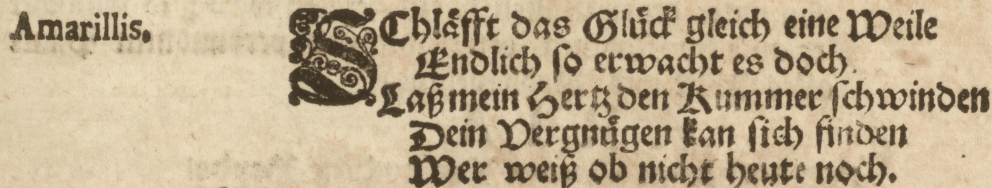 Amarillis.
SChläfft das Glück gleich eine Weile
Endlich so erwacht es doch.
Laß mein Hertz den Kummer schwinden
Dein Vergnügen kan sich finden
Wer weiß ob nicht heute noch.